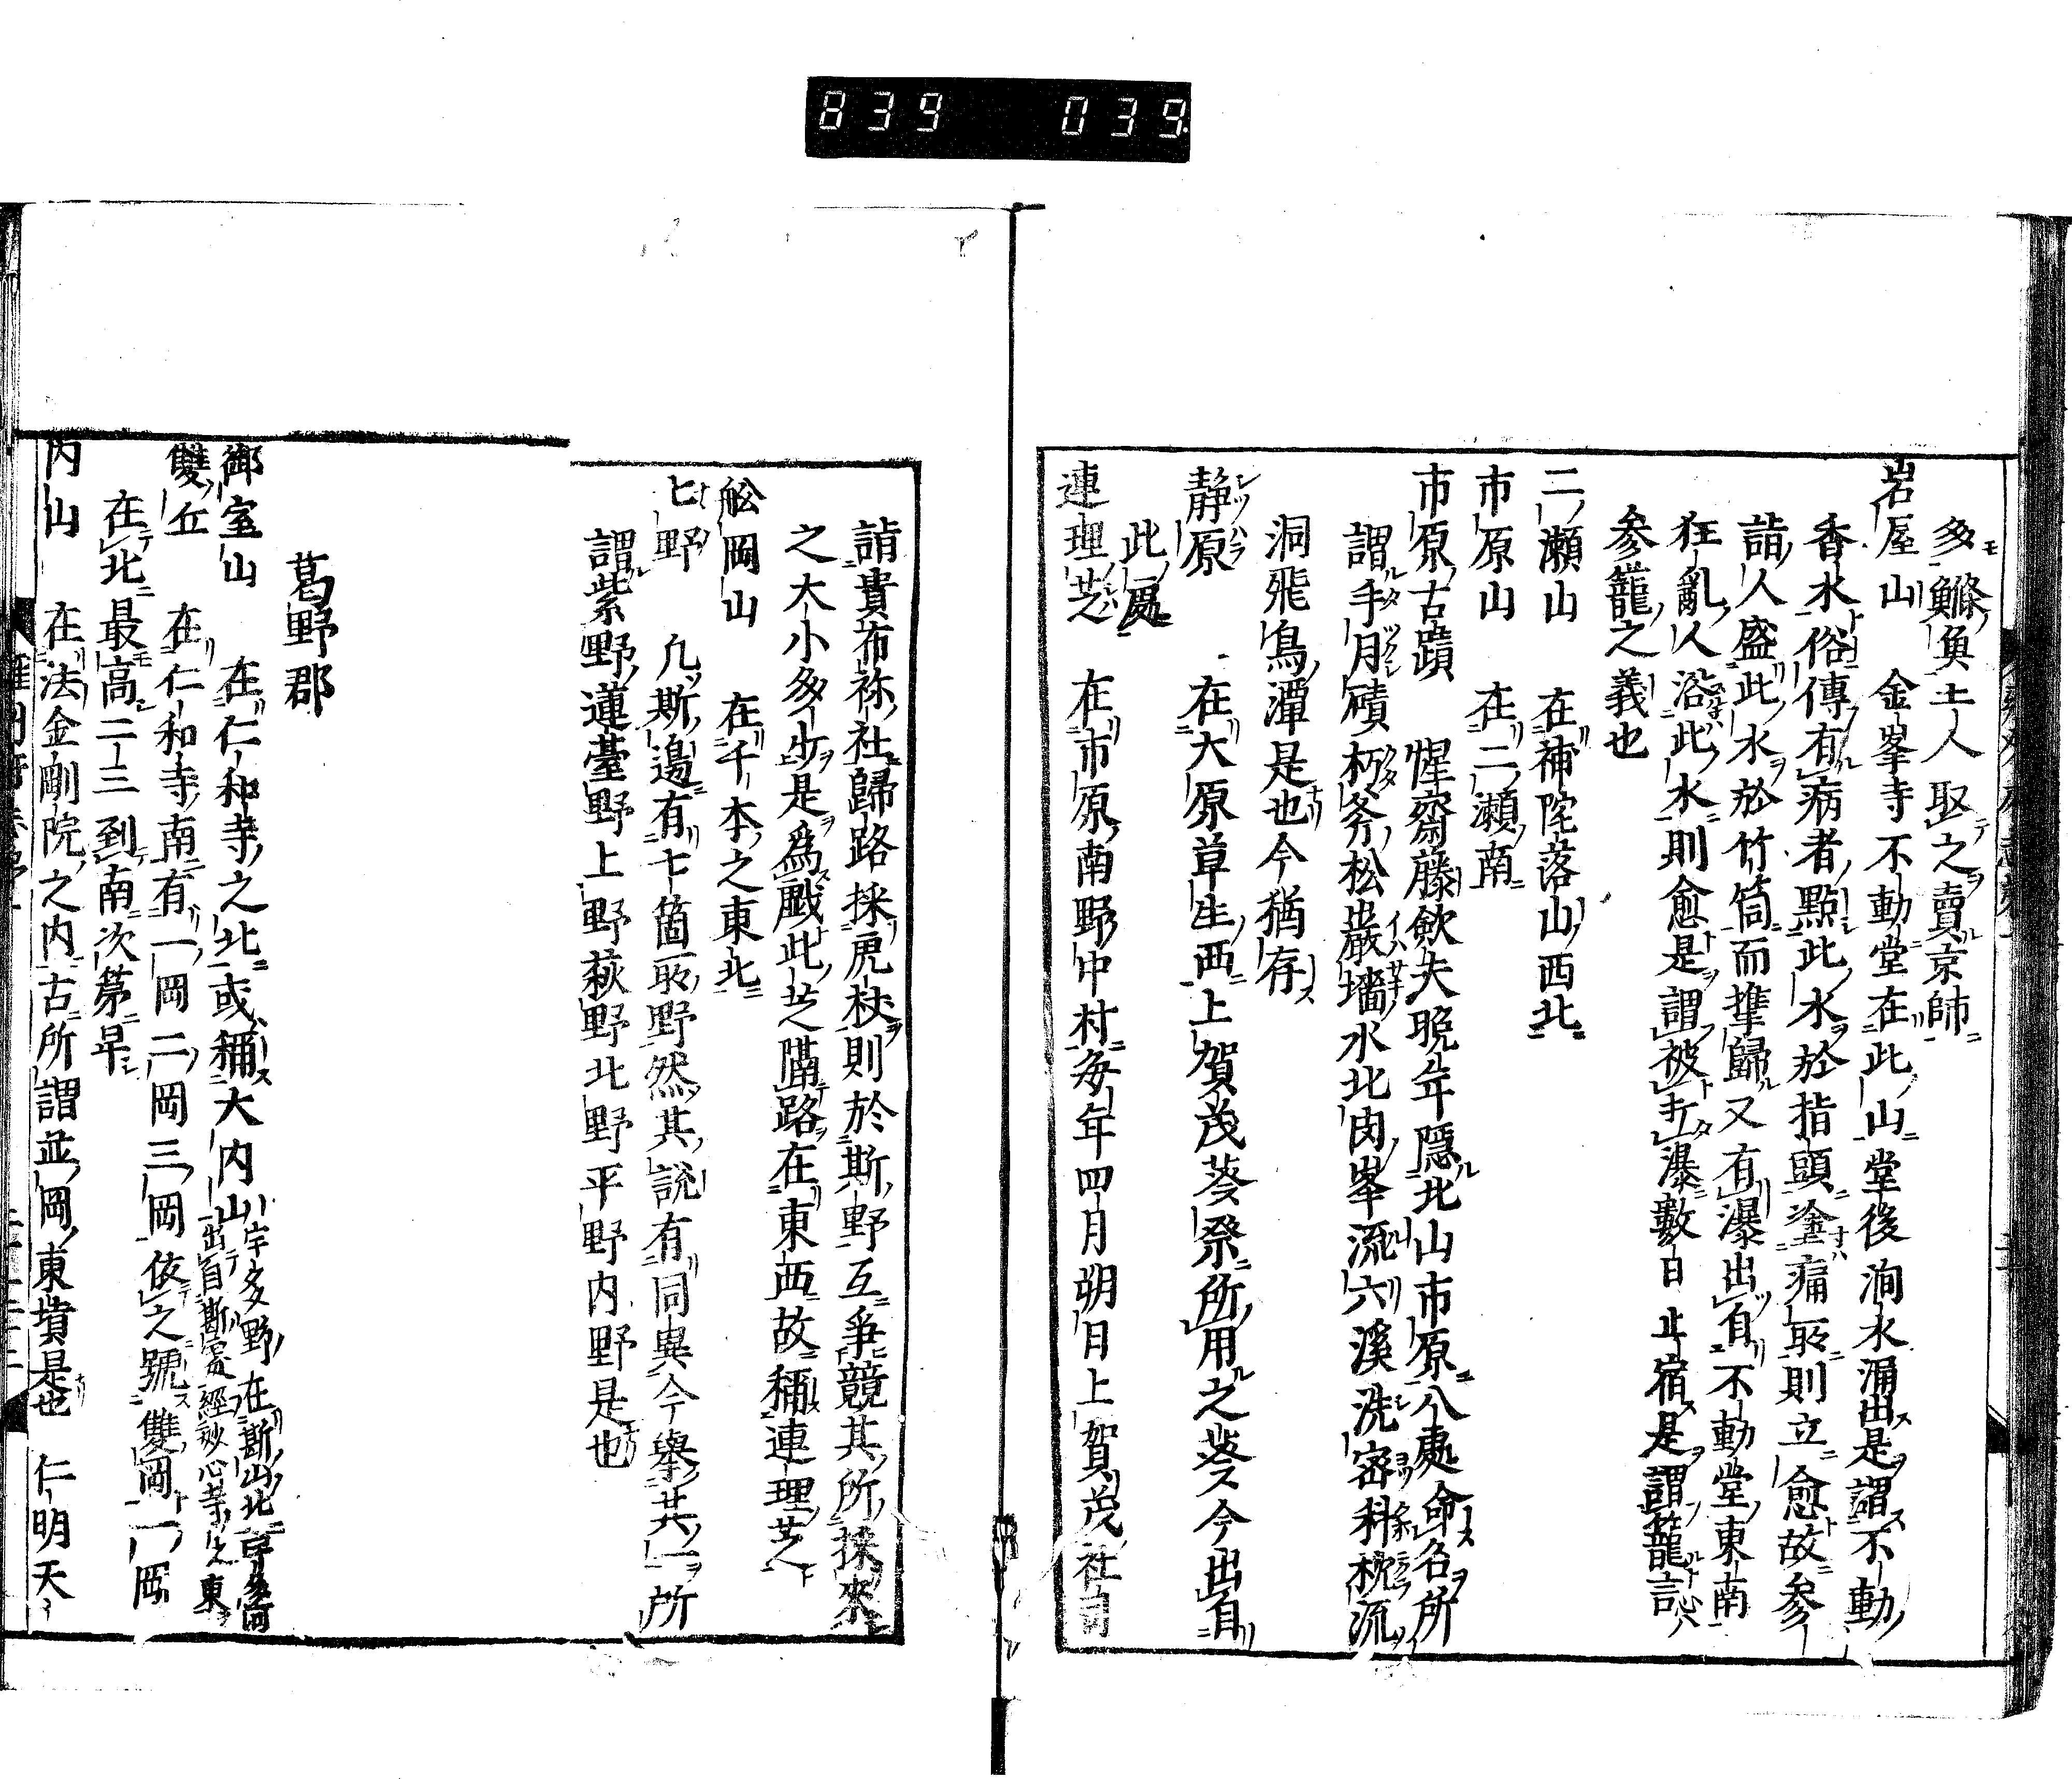 839 039
多鰷魚土人取之賣京師
岩屋山 金峯寺不動堂在此山堂後洞水涌出是謂不動
香水俗傳有病者點此水於指頭塗痛所則立愈故参
詣人盛此水於竹筒而携歸又有瀑出自不動堂東南
狂亂人浴此水則愈是謂被打瀑數日止宿是謂籠言
参籠之義也
二瀬山 在補陀落山西北
市原山 在二瀬南
市原古蹟 惺齋藤歛夫晩年隱北山市原八處命名所
謂手月磧朽斧松巖墻水北肉峯流六溪洗密科枕流
洞飛鳥潭是也今猶存
静原 在大原草生西上賀茂葵祭所用之葵今出自
此處
連理芝 在市原南野中村毎年四月朔日上賀茂社司
詣貴布祢社歸路採虎杖則於斯野互爭競其所採來
之大小多少是爲戲此芝隔路在東西故稱連理芝
舩岡山 在千本之東北
七野 凡斯邊有七箇所野然其説有同異今擧其一所
謂紫野蓮臺野上野萩野北野平野内野是也
葛野郡
御室山 在仁和寺之北或稱大内山宇多野在斯山北
出自斯處經妙心寺之東
雙丘 在仁和寺南有一岡二岡三岡依之號雙岡一岡
在北最高二三到南次第早
内山 在法金剛院之内古所謂並岡東墳是也 仁明天